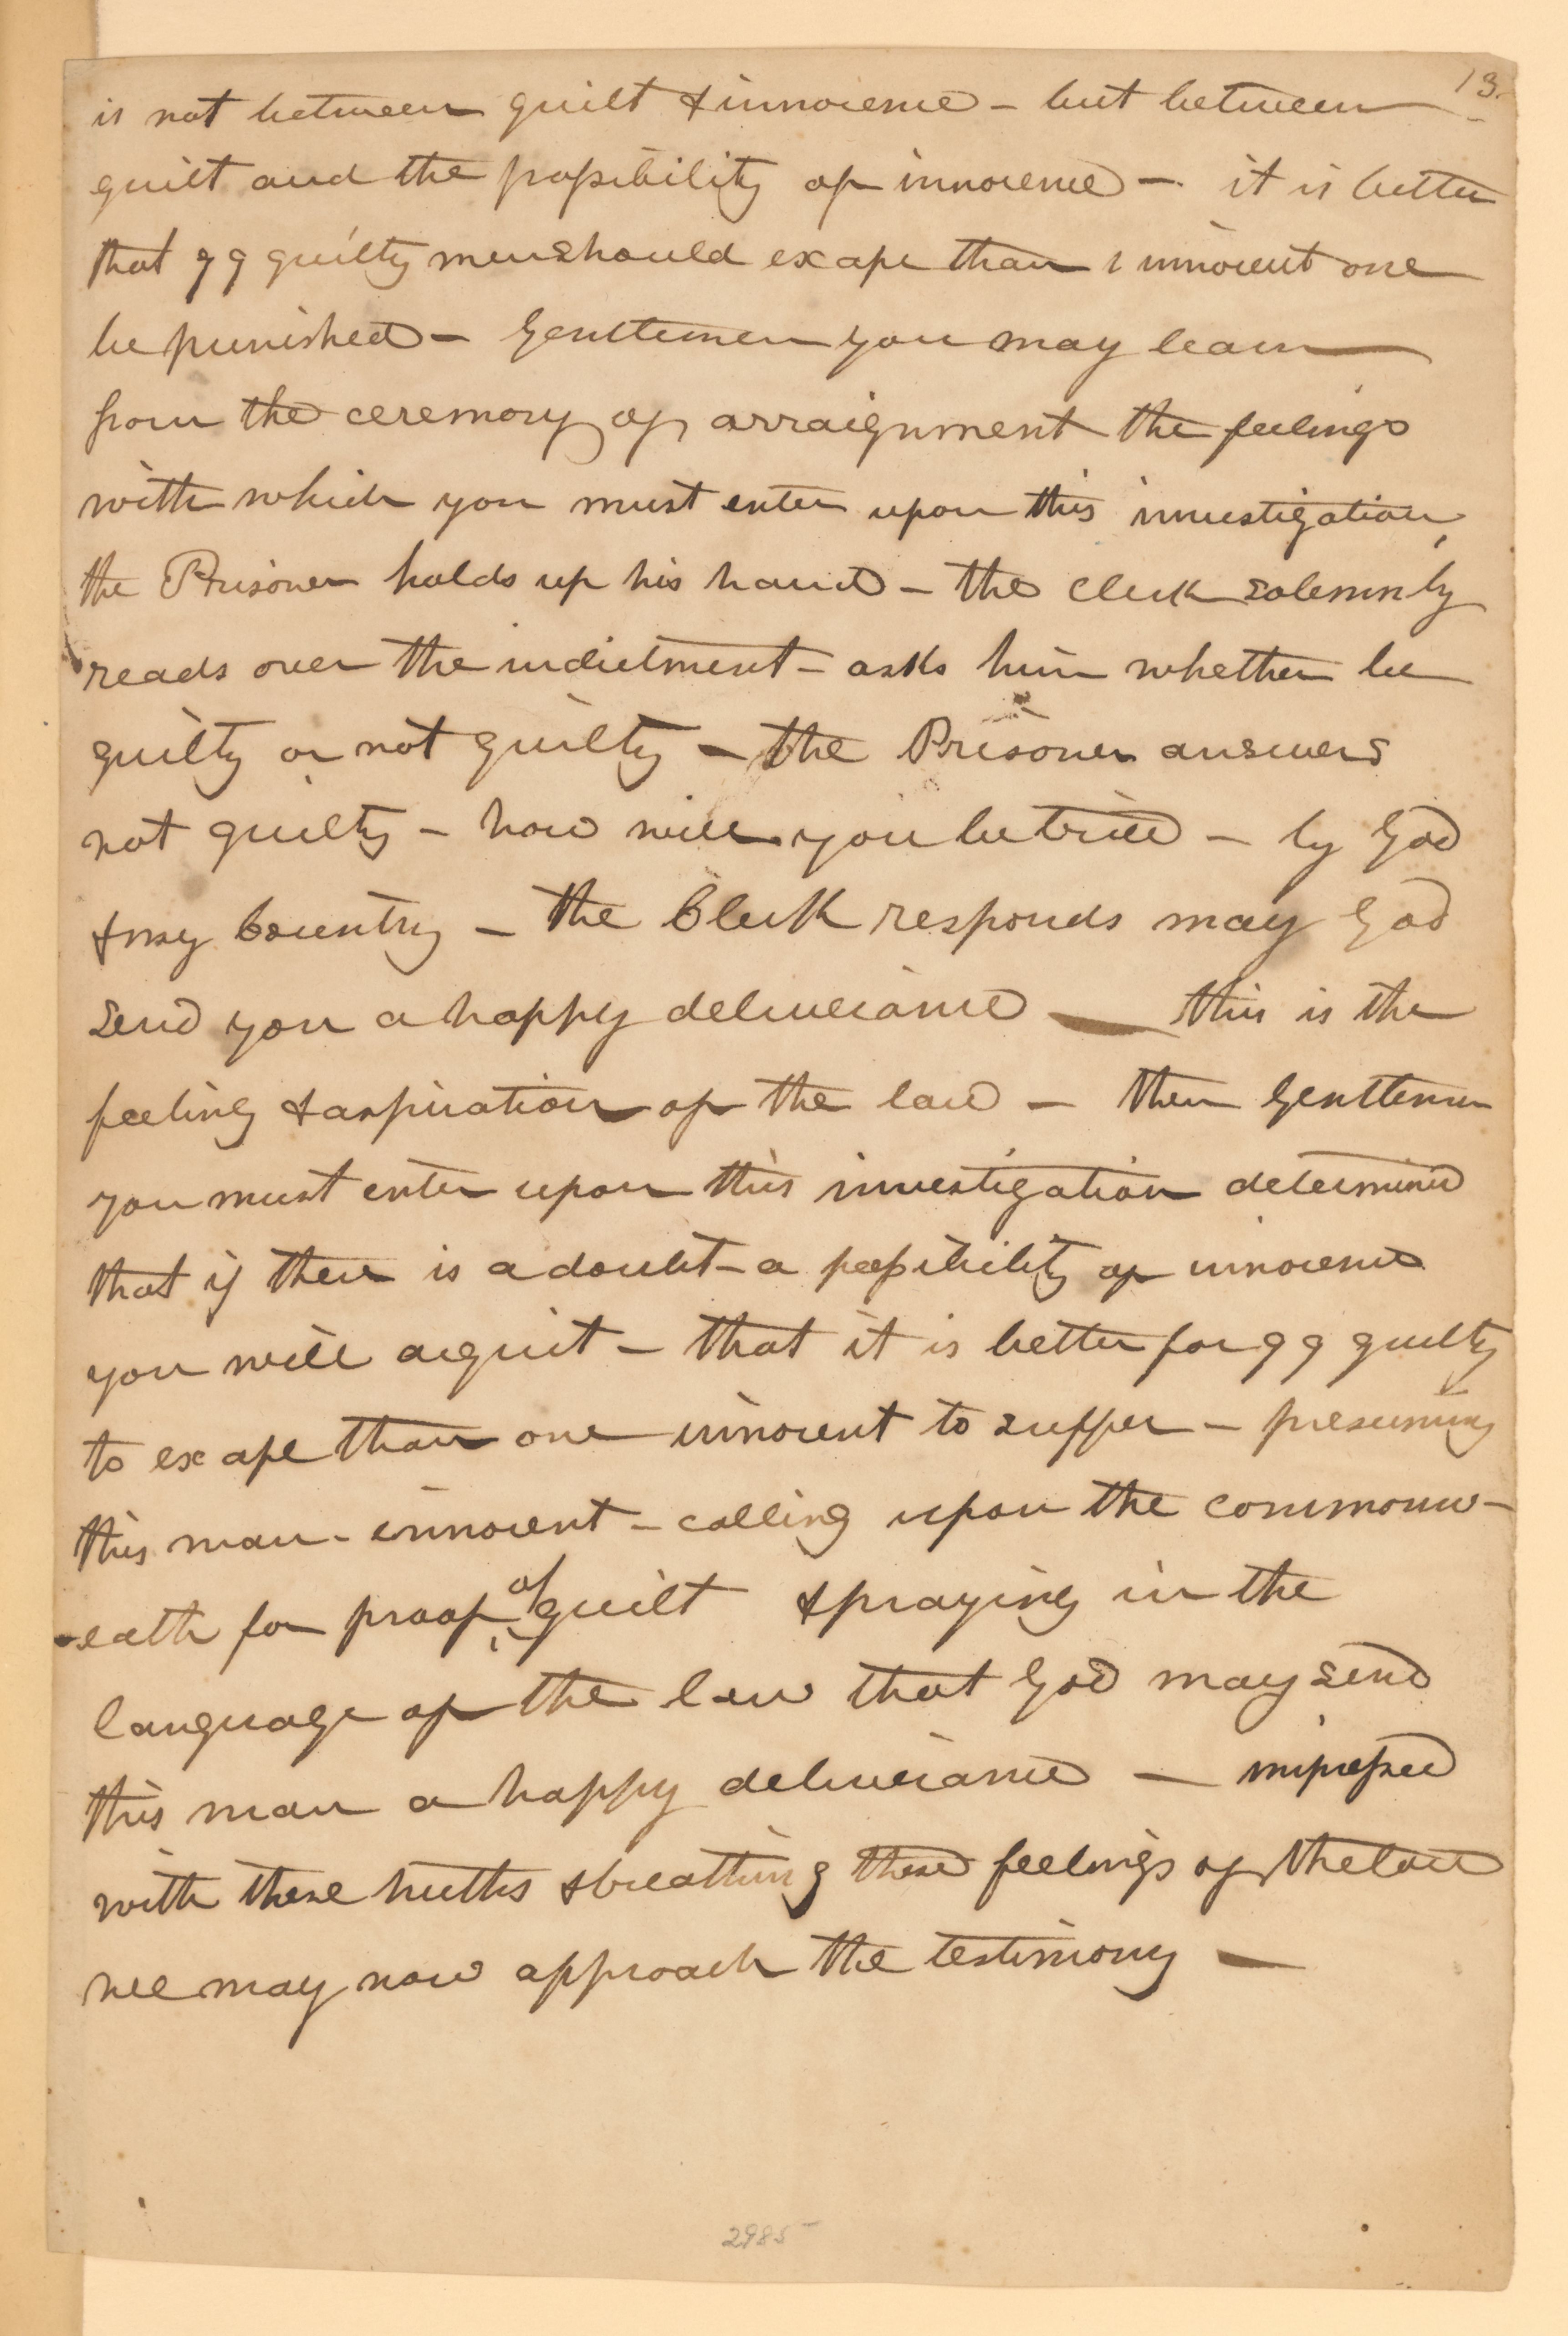 13.
is not between guilt & innocence - but between
guilt and the possibility of innocence - it is better
that 99 guilty men should excape than 1 innocent one
be punished - Gentlemen you may learn
from the ceremony of arraignment the feelings
with which you must enter upon this investigation,
the Prisoner holds up his hand - the clerk solemnly
reads over the indictment - asks him whether he
guilty or not guilty - the Prisoner answers
not guilty - how will you be tried - by God
& my Country - the Clerk responds may God
send you a happy deliverance — this is the
feeling & aspiration of the law - then Gentlemen
you must enter upon this investigation determined
that if there is a doubt - a possibility of innocence
you will acquit - that it is better for 99 guilty
to excape than one innocent to suffer - presuming
this man - innocent - calling upon the commonw-
-ealth for proof of guilt & praying in the
language of the law that God may send
this man a happy deliverance — impressed
with these truths & breathing these feelings of the law
we may now approach the testimony —
2985